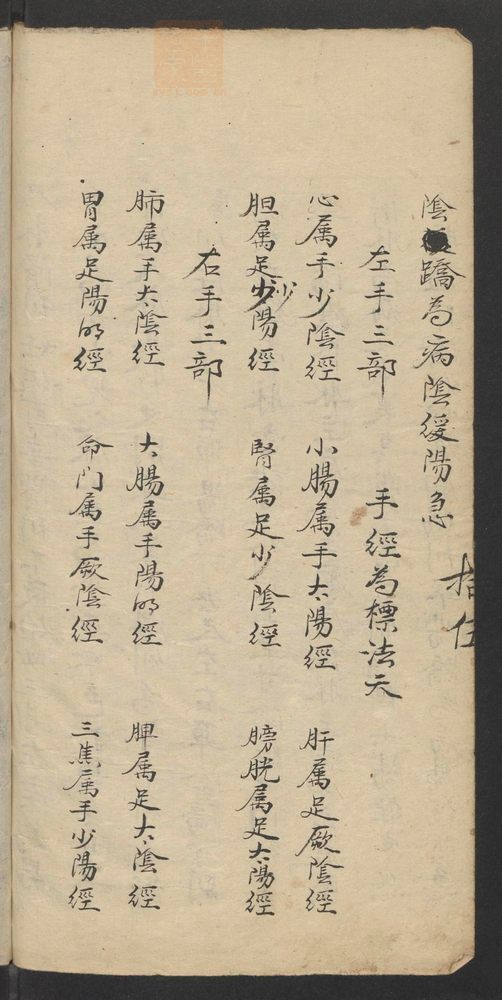 陰蹻為病陰緩陽急
左手三部　手經為標法天
心属手少陰經　小腸属手太陽經　肝属足厥陰經
胆属足少陽經　腎属足少陰經　膀胱属足太陽經
右手三部
肺属手太陰經　大腸属手陽明經　脾属足太陰經
胃属足陽明經　命門属手厥陰經　三焦属手少陽經